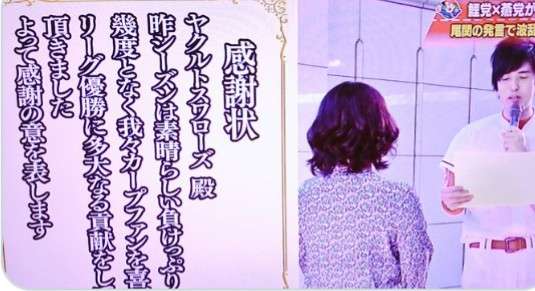 感謝状
ヤクルトスワローズ 殿
昨シーズンは素晴らしい負けっぷり
幾度となく我々カープファンを喜
リーグ優勝に多大なる貢献をし
頂きました
よって感謝の意を表します
鯉党×燕党が
尾関の発言で波乱